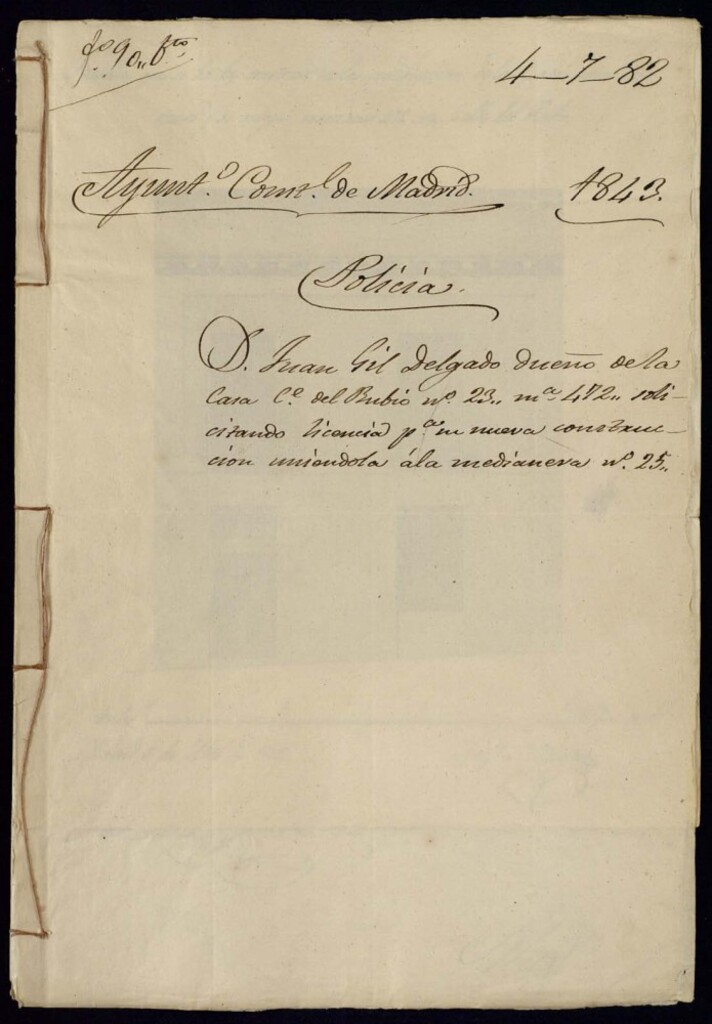 fº 90,, bto
4-7-82
Ayuntº. Constl. de Madrid. 1843.
Policia.
D. Juan Gil Delgado dueño de la
Casa Ce. del Rubio nº. 23,, mª. 472,, soli-
citando licencia pª su nueva construc-
cion uniendola á la medianera nº. 25,,